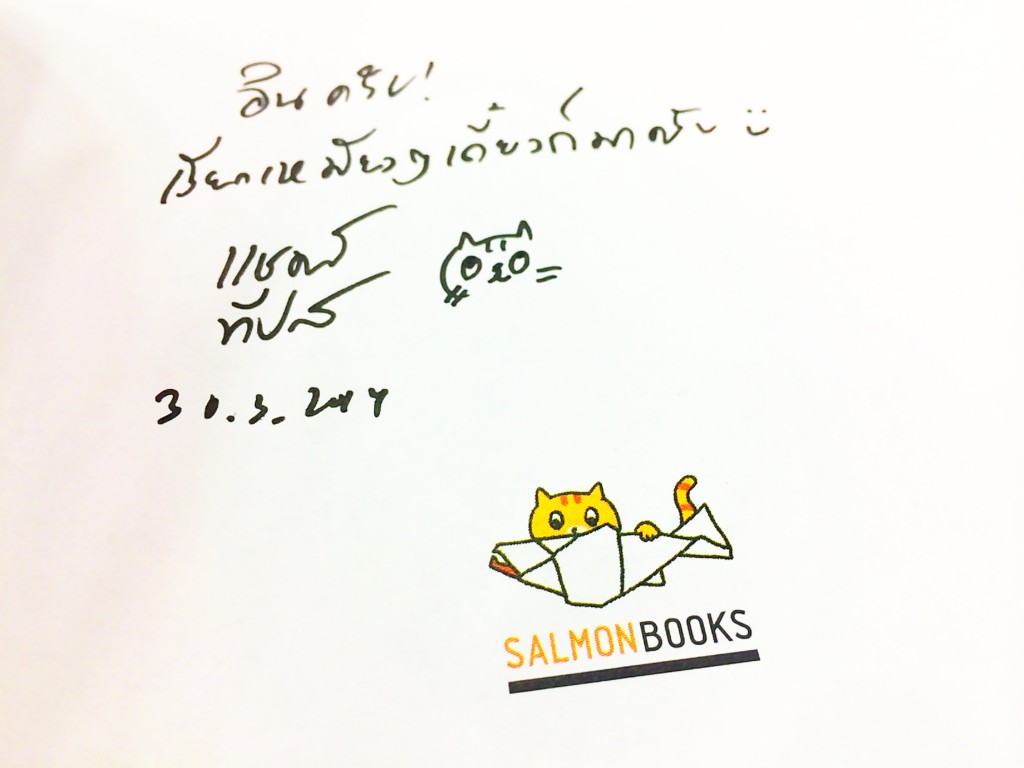 อินครับ!
เรียกเหมียวๆ เดี๋ยวก็มาครับ :)
แชมป์
ทีปกร
30.3.2014
SALMONBOOKS